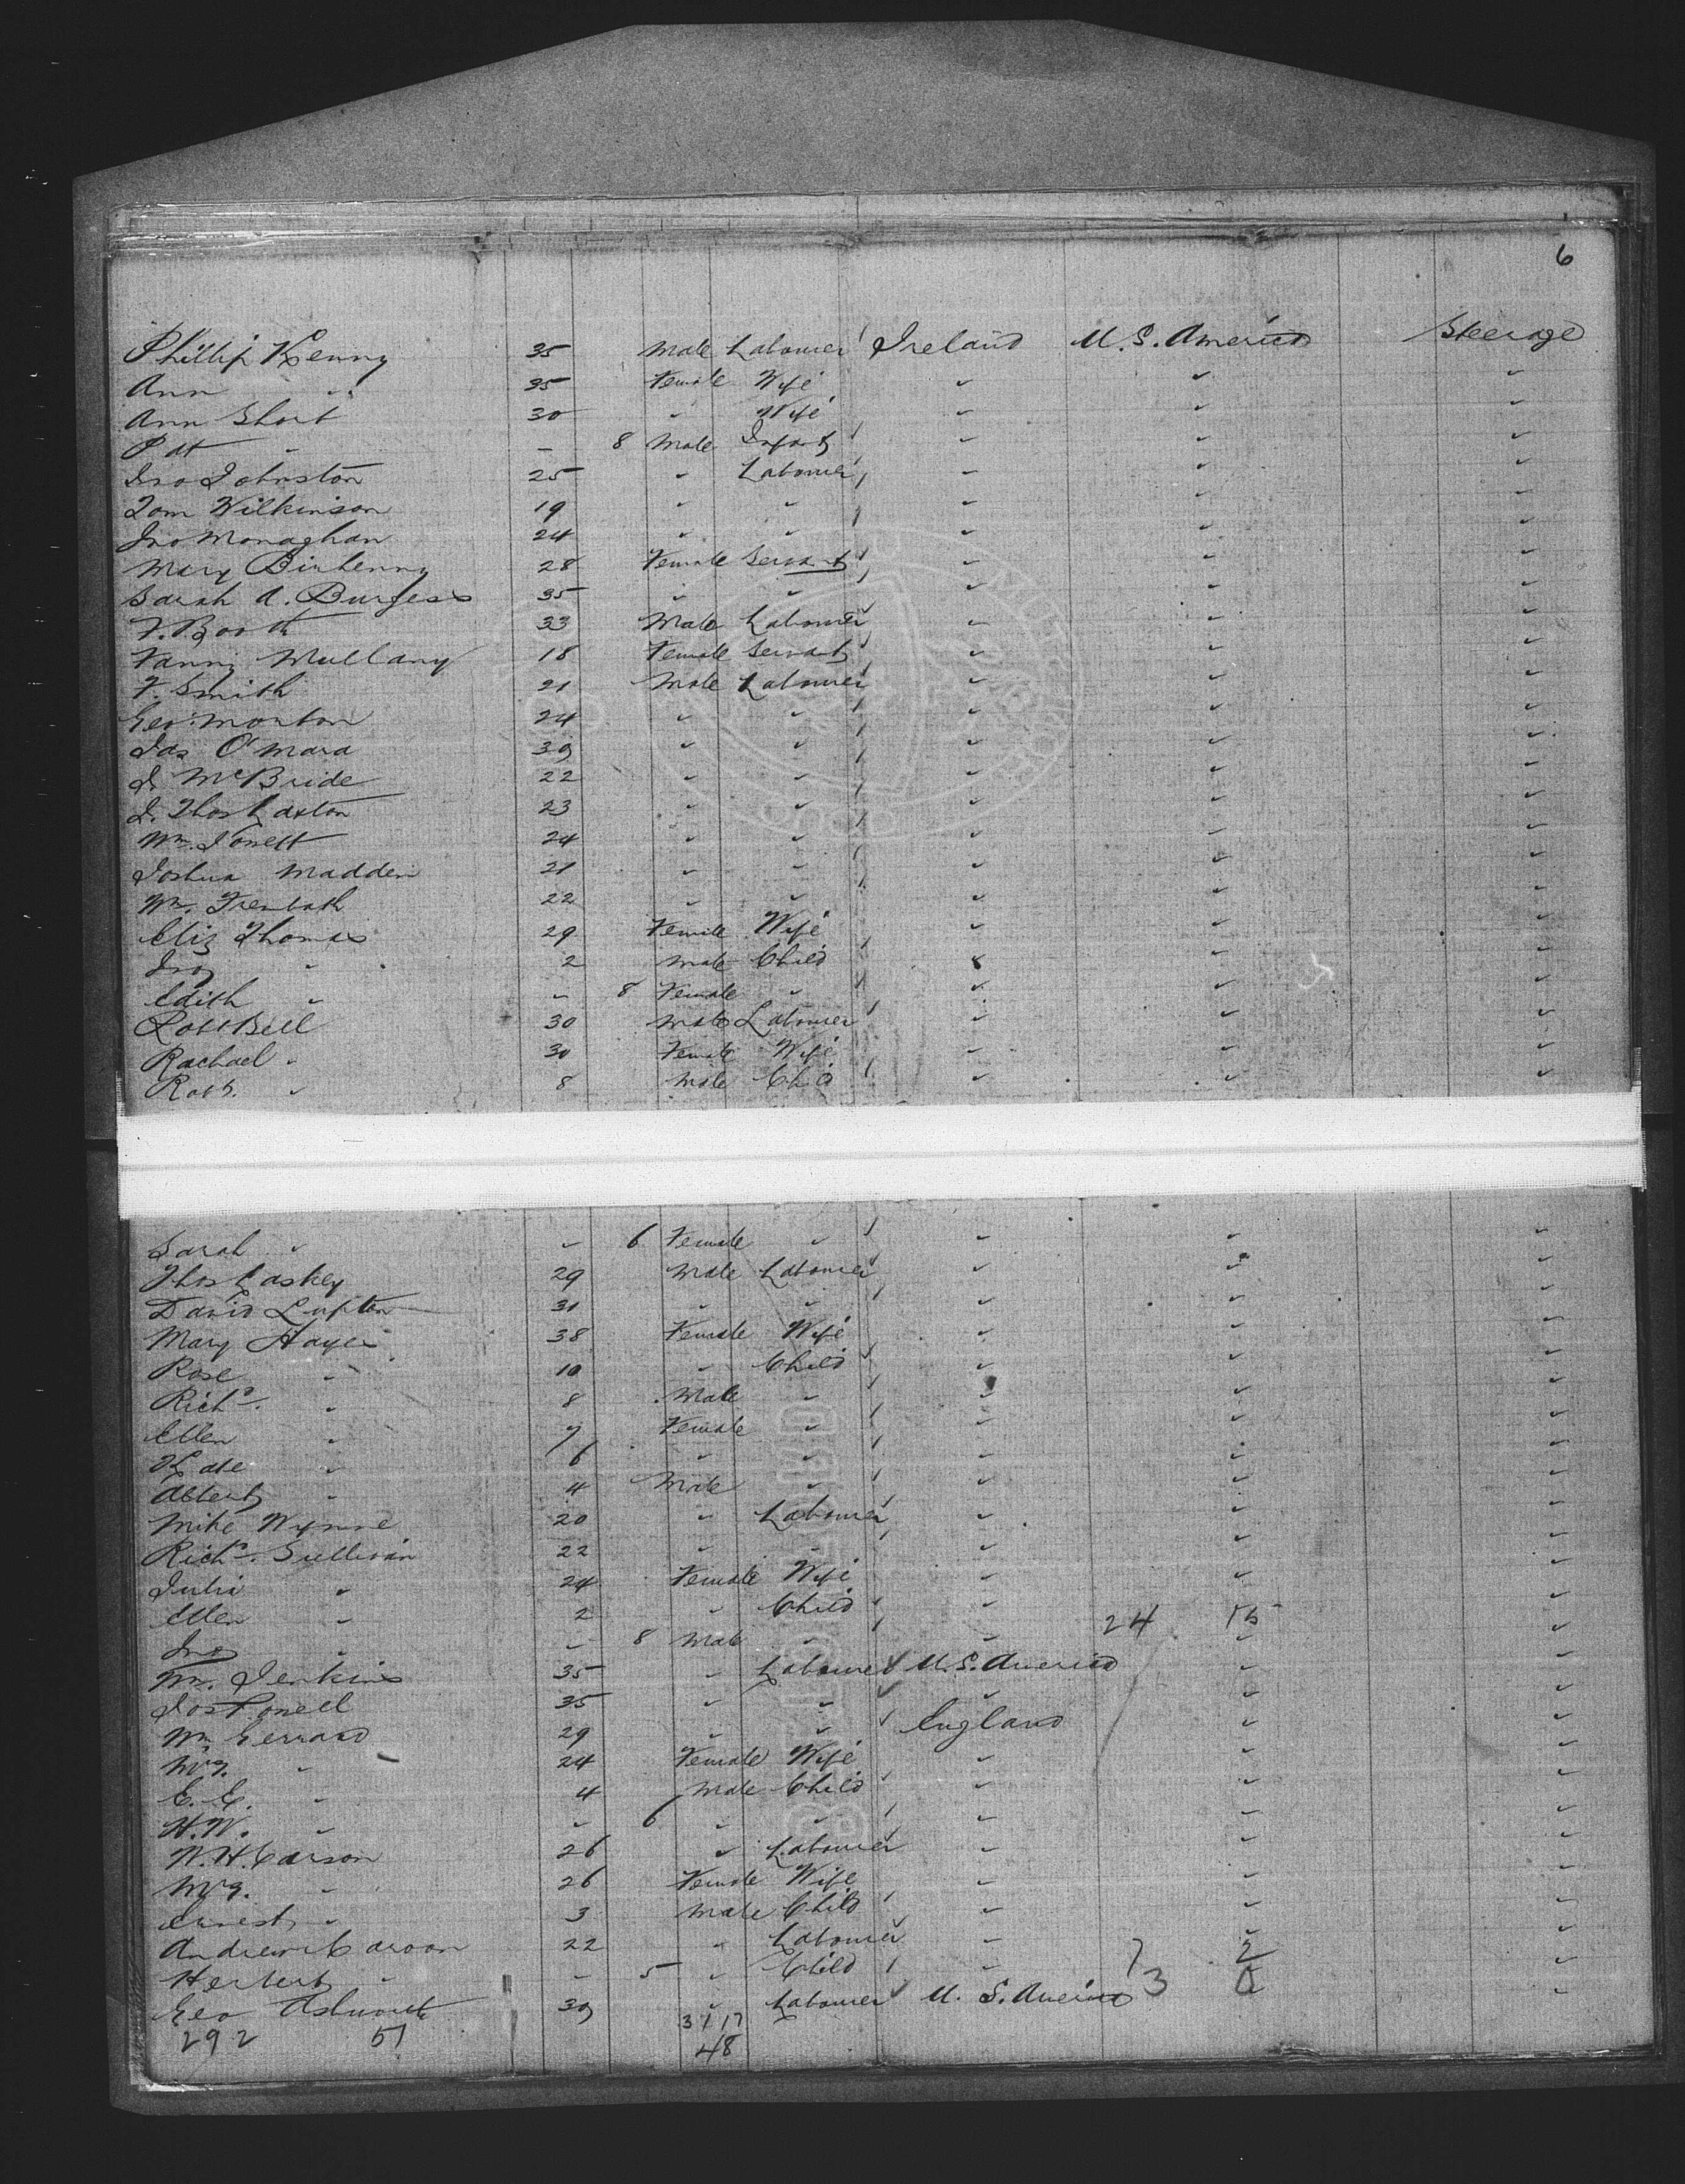 6
Phillip Kenny 35 Male Labourer Ireland U.S. America Steerage
Ann " 35 Female Wife " " "
Ann Short 30 " Wife " " "
Pat " - 8 Male Infant " " "
Jno Johnston 25 " Labourer " " "
Tom Wilkinson 19 " " " " "
Jno Monaghan 24 " " " " "
Mary 28 Female Servant " " "
Sarah A. Burgess 35 " " " " "
F. Booth 33 Male Labourer " " "
Fanny Mullany 18 Female Servant " " "
F. Smith 21 Male Labourer " " "
Geo. Morton 24 " " " " "
Jas O'Mara 39 " " " " "
J. McBride 22 " " " " "
J. Thos 23 " " " " "
Wm. 24 " " " " "
Joshua Madden 21 " " " " "
Wm. Trenbath 22 " " " " "
Eliz Thomas 29 Female Wife " " "
Jno " 2 Male Child " " "
Edith " - 8 Female " " " "
Robt Bell 30 Male Labourer " " "
Rachael " 30 Female Wife " " "
Robt. " 8 Male Child " " "
Sarah " - 6 Female " " " "
Thos Laskey 29 Male Labourer " " "
David Lupton 31 " " " " "
Mary Hayes 38 Female Wife " " "
Rose " 10 " Child " " "
Richd. " 8 Male " " " "
Ellen " 7 Female " " " "
Kate " 6 " " " " "
Albert " 4 Male " " " "
Mike Wynne 20 " Labourer " " "
Richd. Sullivan 22 " " " " "
Julia " 24 Female Wife " " "
Ellen " 2 " Child " 24 15 "
Jno " - 8 Male " " " "
Wm. Jenkins 35 " Labourer U.S. America " "
Jos Powell 35 " " " " "
Wm Gerrard 29 " " England " "
Mrs. " 24 Female Wife " " "
E. E. " 4 Male Child " " "
H.W. " - 6 " " " " "
W.H. Carson 26 " Labourer " " "
Mrs. " 26 Female Wife " " "
Ernest " 3 Male Child " " "
Andrew Carson 22 " Labourer " " "
Herbert " - 5 " Child " 7 2 "
Geo Ashworth 39 " Labourer U. S. America 3 "
292 51 31 17
48